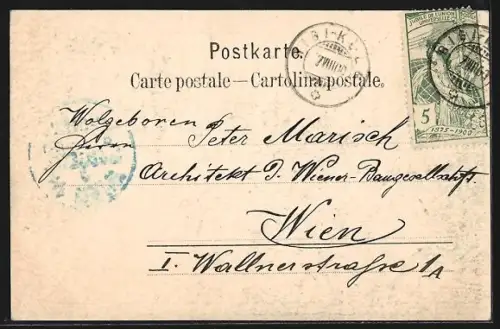 Postkarte.
Carte postale — Cartolina postale.
RIGI-KU
7 VIII 00
RIGI-K
7 VIII 00
JUBILÉ DE L'UNION
5
1875-1900
Wolgeboren
Herrn Peter Marisch
Architekt d. Wiener-Baugesellschft.
Wien
I. Wallnerstraße 1A